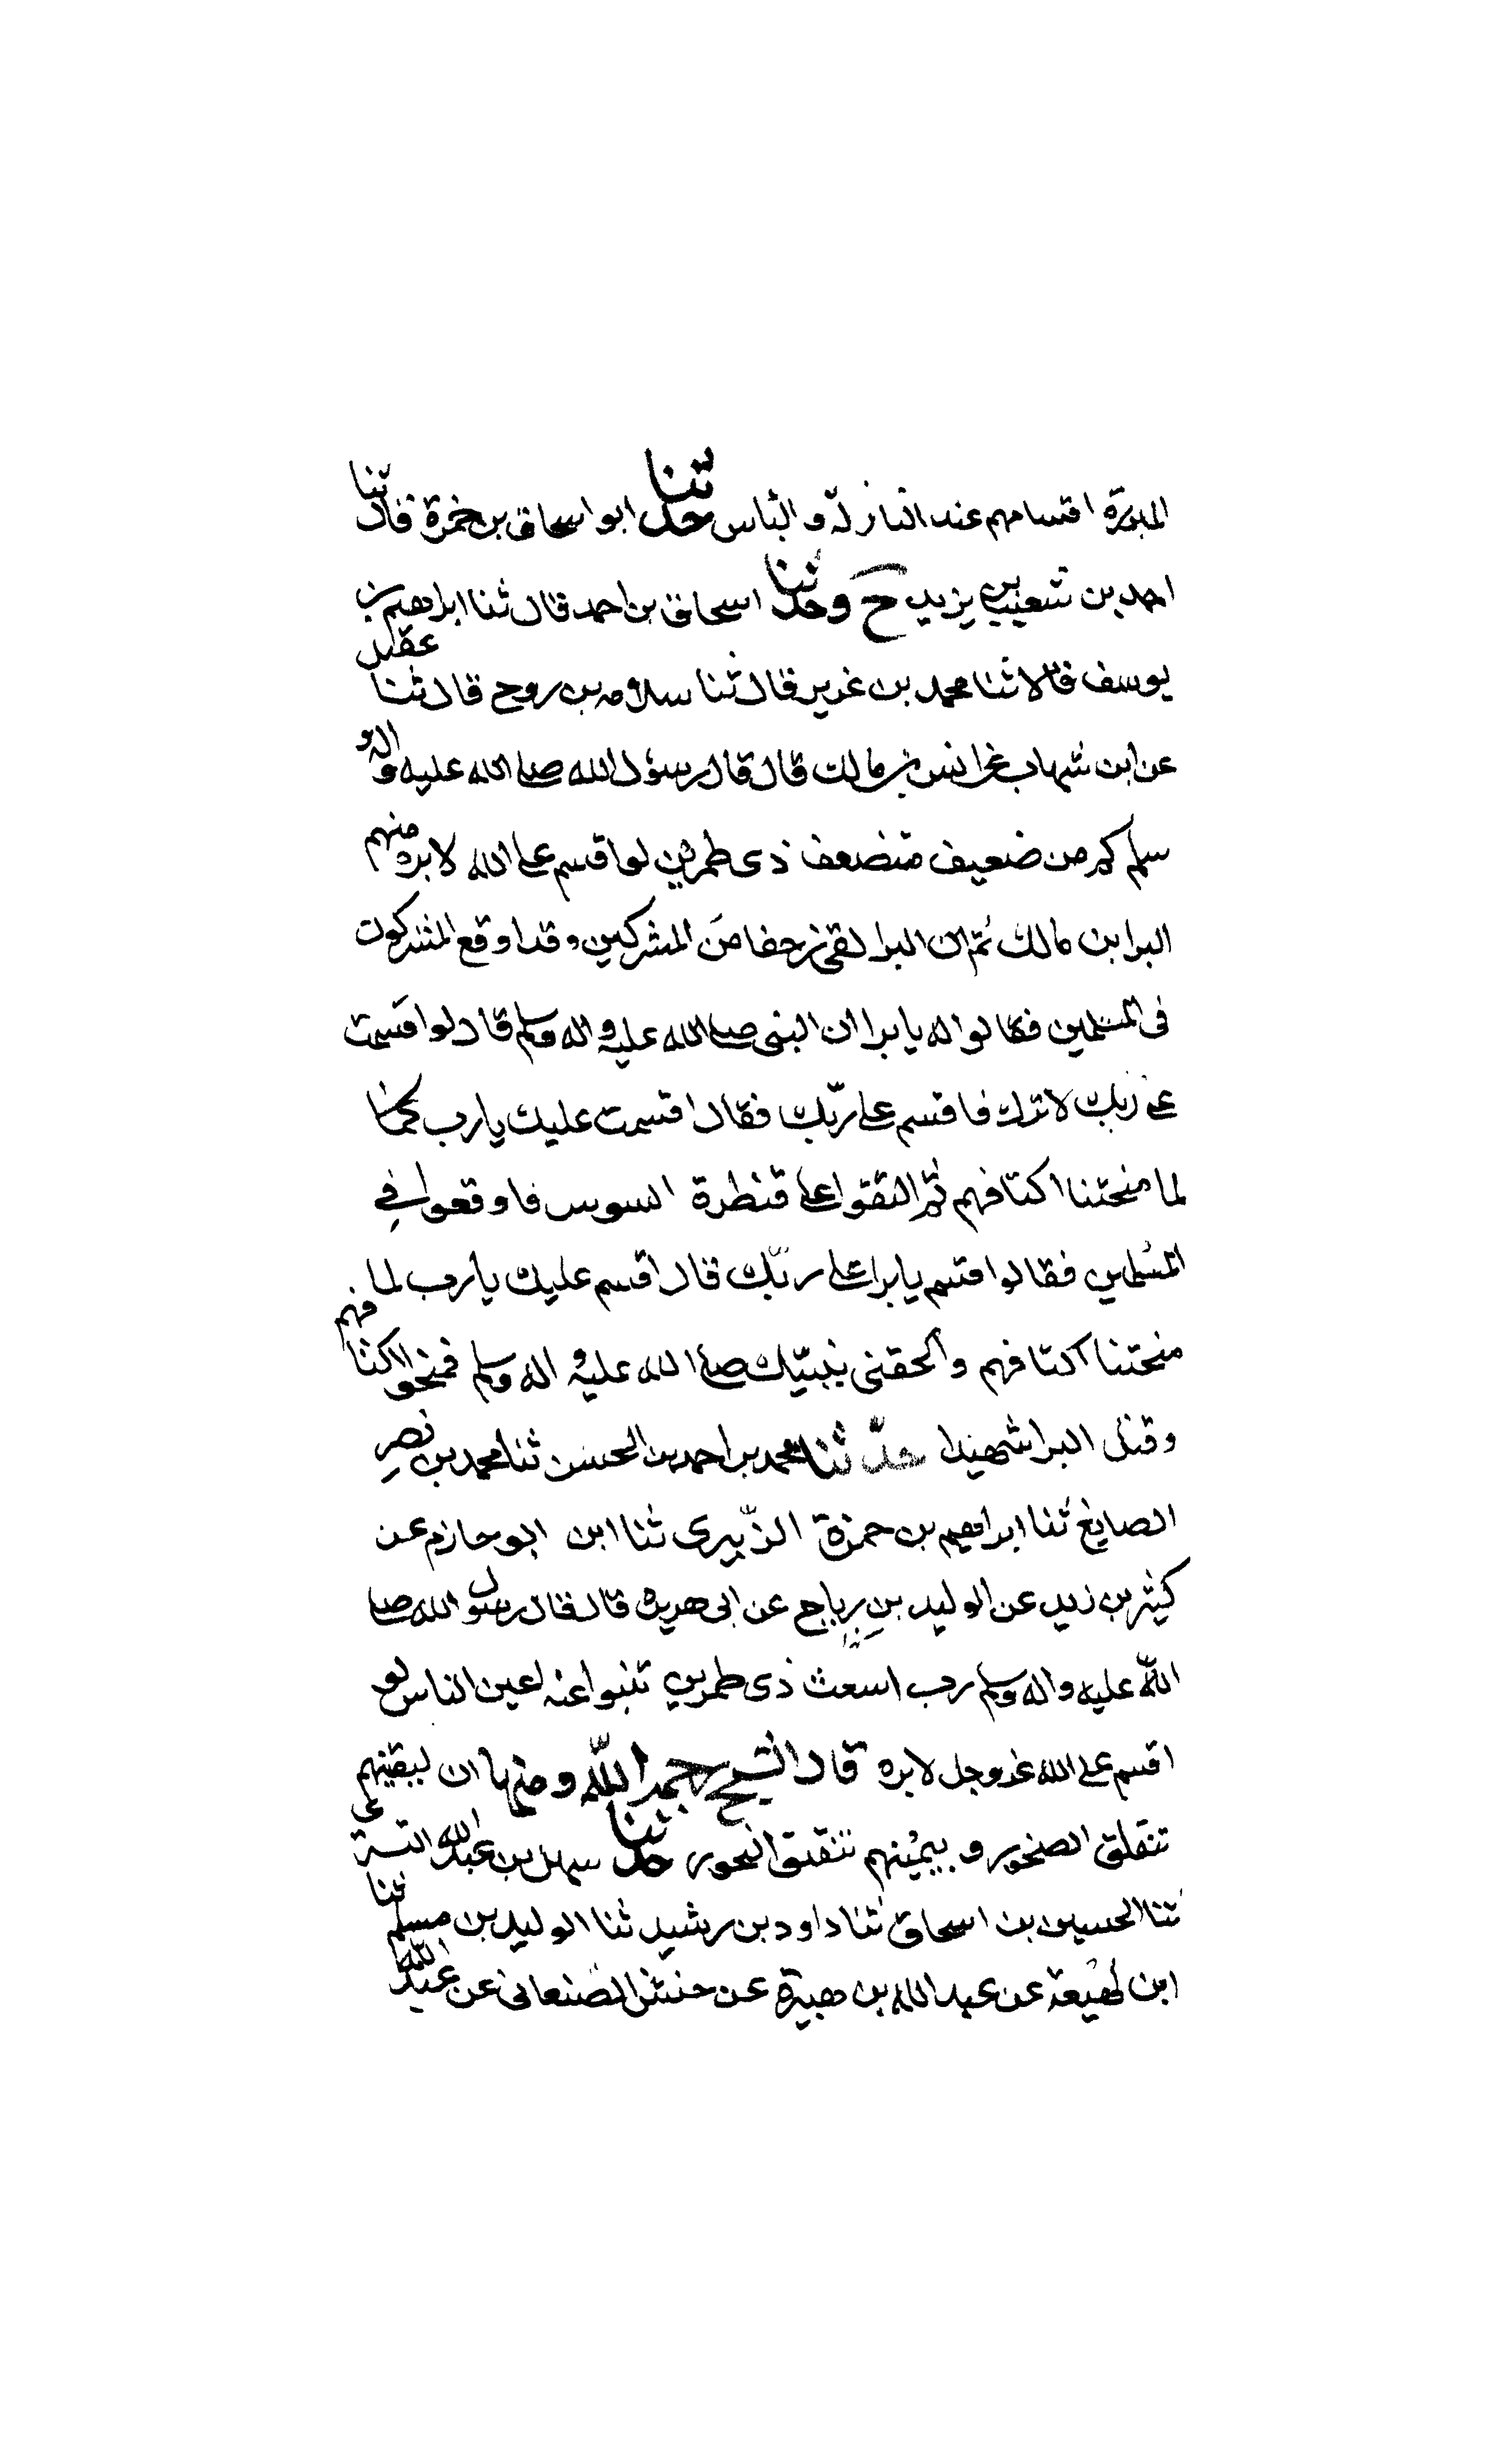 المبرّة اقسامهم عند النازلة والباس حدثنا ابو اسحاق بن حمزة قال ثنا
احمد بن شعيب بن يزيد ح وحدثنا اسحاق بن احمد قال ثنا ابراهيم بن
يوسف قالا ثنا محمد بن عزير قال ثنا سلامه بن روح قال ثنا عقيل
عن ابن شهاب عن انس بن مالك قال قال رسول الله صلى الله عليه واله و
سلم كم من ضعيف متضعف ذى طمرين لو اقسم على الله لابره منهم
البرا بن مالك ثم ان البرا لقى زحفا من المشركين وقد اوقع المشركون
فى المسلمين فقالوا له يا برا ان النبى صلى الله عليه واله وسلم قال لو اقسمت
على ربك لابرك فاقسم على ربّك فقال اقسمت عليك يا رب كما
لما منحتنا اكتافهم ثم التقوا على قنطرة السوس فاوقعوا في
المسلمين فقالوا اقسم يا برا على ربّك قال اقسم عليك يا رب لما
منحتنا اكتافهم والحقنى بنبيّك صلى الله عليه واله وسلم فمنحوا اكتافهم
وقتل البرا شهيدا حدّثنا محمد بن احمد بن الحسن ثنا محمد بن نصر
الصايغ ثنا ابراهيم بن حمزة الزّبيرى ثنا ابن ابو حازم عن
كثير بن زيد عن الوليد بن رباح عن ابى هريره قال قال رسول الله صلى
الله عليه واله وسلم رب اسعث ذى طمرين تنبوا عنه اعين الناس لو
اقسم على الله عز وجل لابره قال الشيخ رحمه الله ومنها ان ليقينهم
تتفلق الصخور و بيمينهم تتفتق البحور حدثنا سهل بن عبد الله التسترى
ثنا الحسين بن اسحاق ثنا داود بن رشيد ثنا الوليد بن مسلم ثنا
ابن لهيعة عن عبد الله بن هبيرة عن حنش الصنعانى عن عبد الله